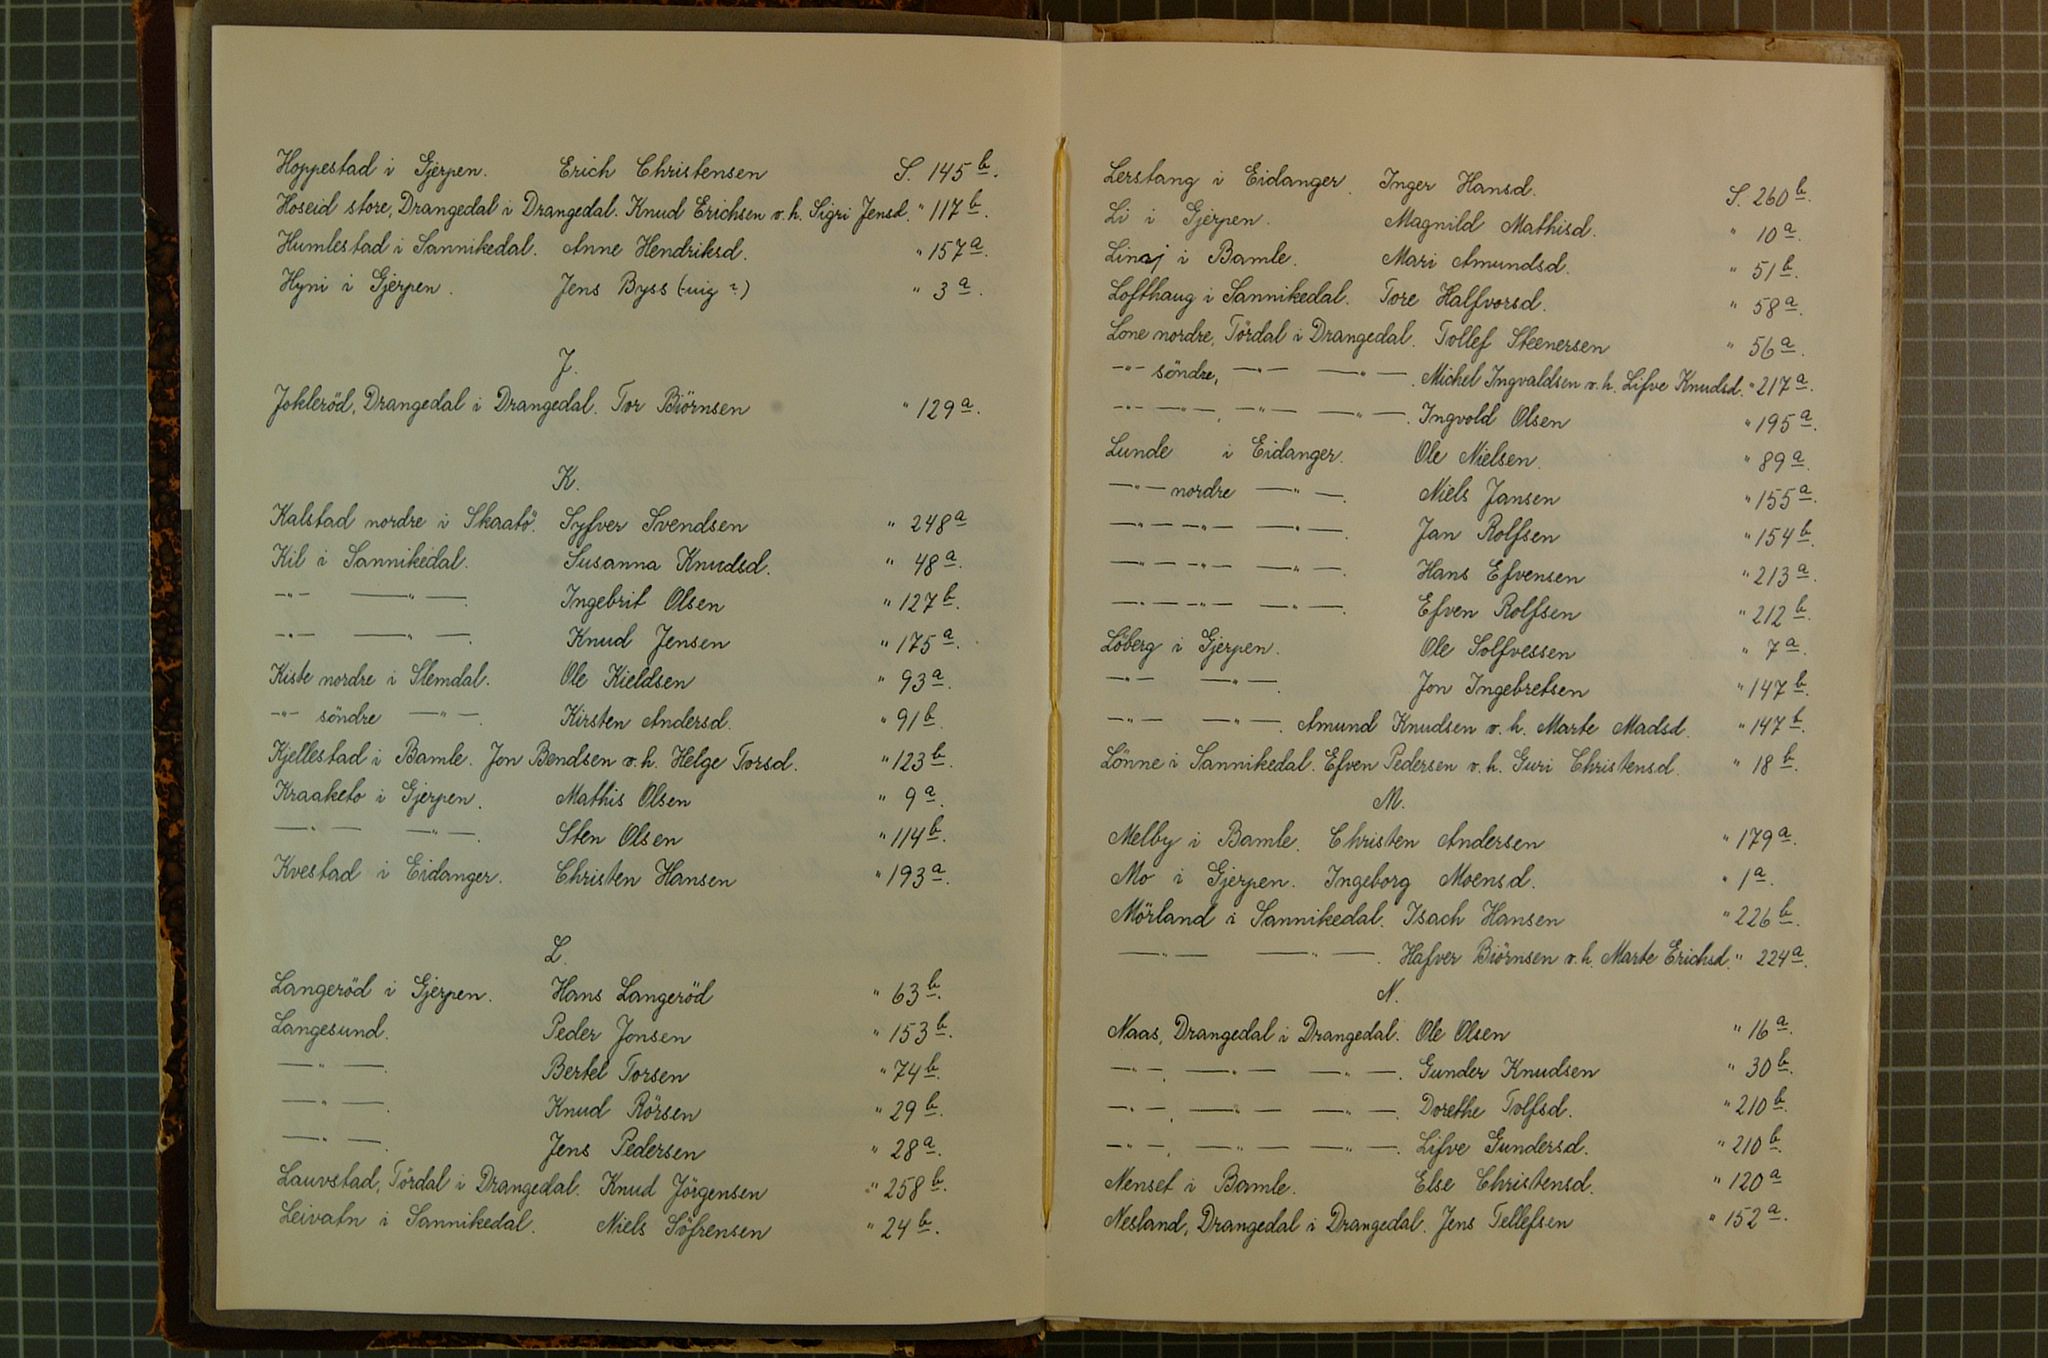 Hoppestad i Gjerpen. Erich Christensen S. 145 b.
Hoseid store, Drangedal i Drangedal. Knud Erichsen v. h. Sigri Jensd. " 117 b.
Humlestad i Sannikedal. Anne Hendriksd. " 157 a.
Hyni i Gjerpen. Jens Byss ( ?) " 3 a.
J.
Jokleröd, Drangedal i Drangedal. Tor Biörnsen " 129 a.
K.
Kalstad nordre i Skaatö. Syfver Svendsen " 248 a
Kil i Sannikedal. Susanna Knudsd. " 48 a.
—"— —"—. Ingebrit Olsen " 127 b.
—"— —"—. Knud Jensen " 175 a.
Kiste nordre i Slemdal. Ole Kieldsen " 93 a.
—"— söndre —"—. Kirsten Andersd. " 91 b.
Kjellestad i Bamle. Jon Bendsen v. h. Helge Torsd. " 123 b.
Kraaketo i Gjerpen. Mathis Olsen " 9 a.
—"— —"—. Sten Olsen " 114 b.
Kvestad i Eidanger. Christen Hansen " 193 a.
L.
Langeröd i Gjerpen. Hans Langeröd " 63 b.
Langesund. Peder Jonsen " 153 b.
—"—. Bertel Torsen " 74 b.
—"—. Knud Rörsen " 29 b.
—"—. Jens Pedersen " 28 a.
Lauvstad, Tördal i Drangedal. Knud Jörgensen " 258 b.
Leivatn i Sannikedal. Niels Söfrensen " 24 b.
Lerstang i Eidanger. Inger Hansd. S. 260 b.
Li i Gjerpen. Magnild Mathisd. " 10 a.
i Bamle. Mari Amundsd. " 51 b.
Lofthaug i Sannikedal. Tore Halfvorsd. " 58 a.
Lone nordre, Tördal i Drangedal. Tollef Steenersen " 56 a.
—"— söndre, —"— —"—. Michel Ingvaldsen v. h. Lifve Knudsd. " 217 a.
—"— —"—, —"— —"—. Ingvold Olsen " 195 a.
Lunde i Eidanger. Ole Nielsen. " 89 a.
—"— nordre —"—. Niels Jansen " 155 a.
—"— —"— —"—. Jan Rolfsen " 154 b.
—"— —"— —"—. Hans Efvensen " 213 a.
—"— —"— —"—. Efven Rolfsen " 212 b.
Löberg i Gjerpen. Ole Solfvessen " 7 a.
—"— —"—. Jon Ingebretsen " 147 b.
—"— —"—. Amund Knudsen v. h. Marte Madsd. " 147 b.
Lönne i Sannikedal. Efven Pedersen v. h. Guri Christensd. " 18 b.
M.
Melby i Bamle. Christen Andersen " 179 a.
Mo i Gjerpen. Ingeborg Moensd. " 1 a.
Mörland i Sannikedal. Isach Hansen " 226 b.
—"— —"—. Hafver Biörnsen v. h. Marte Erichsd. " 224 a.
N.
Naas, Drangedal i Drangedal. Ole Olsen " 16 a.
—"—, —"— —"—. Gunder Knudsen " 30 b.
—"—, —"— —"—. Dorethe Tolfsd. " 210 b.
—"—, —"— —"—. Lifve Gundersd. " 210 b.
Nenset i Bamle. Else Christensd. " 120 a
Nesland, Drangedal i Drangedal. Jens Tellefsen " 152 a.